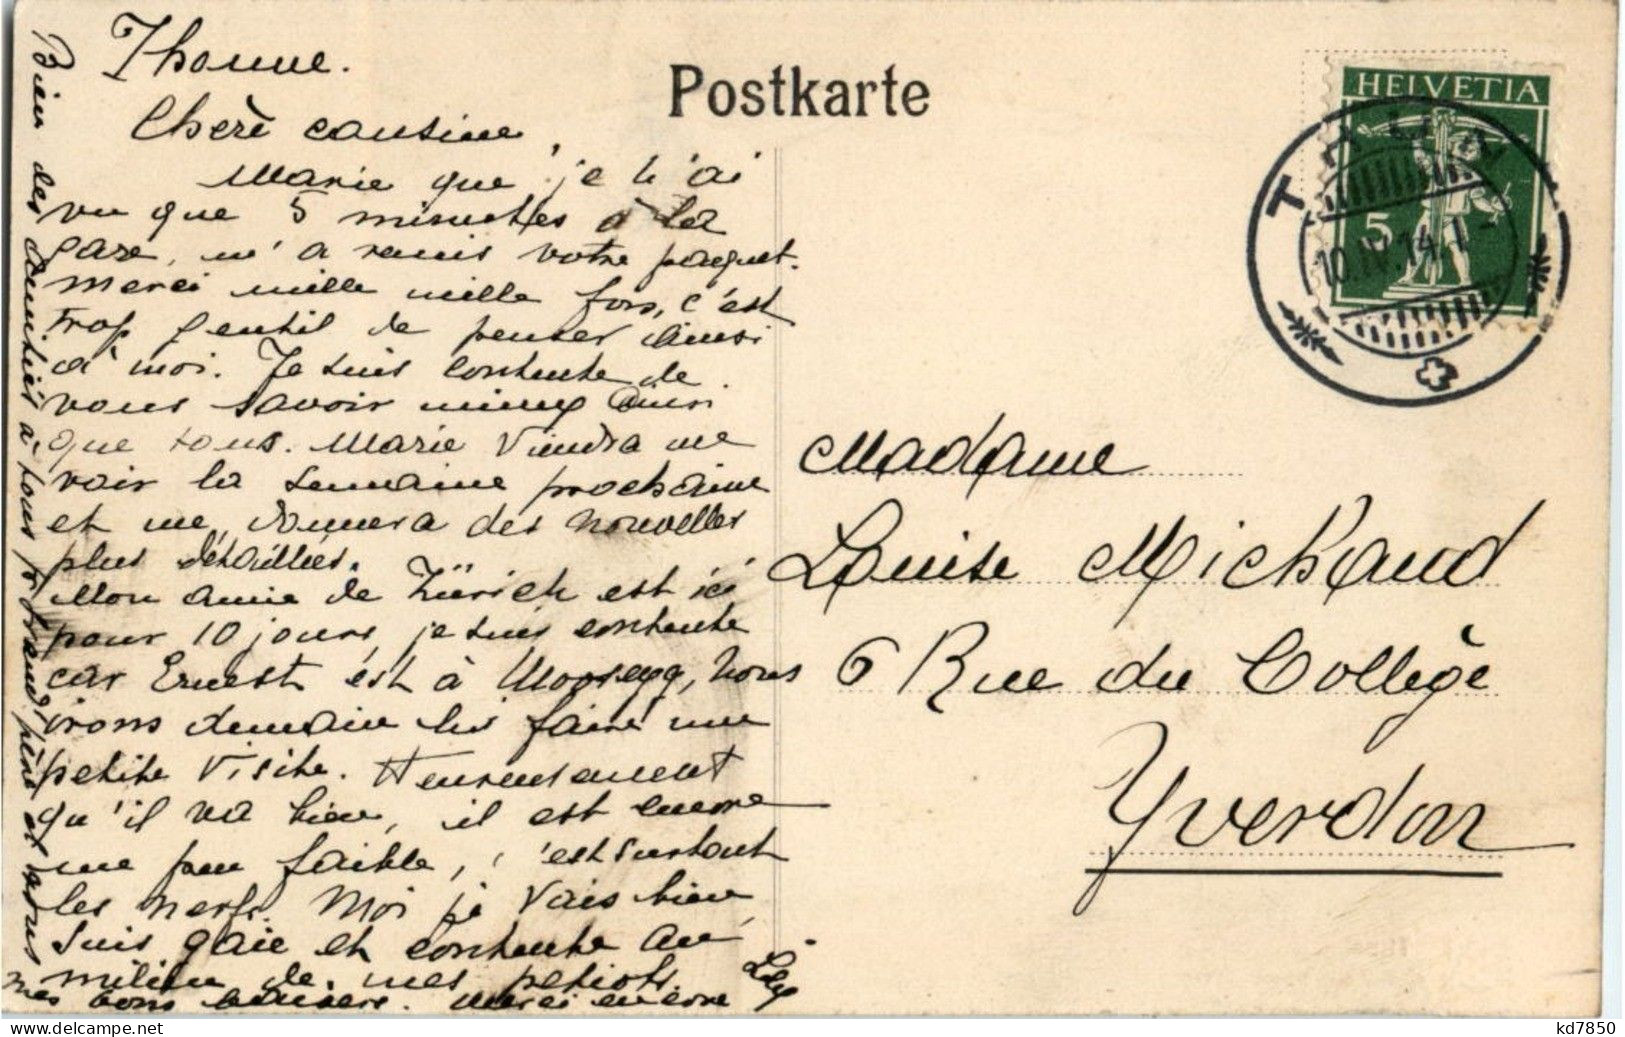 Postkarte
HELVETIA
5
THUN
10.IV.14.1-
Thoune.
Chère cousine,
Marie que je n'ai
vu que 5 minutes à la
gare, m'a remis votre paquet.
Merci mille mille fois, c'est
trop gentil de penser ainsi
à moi. Je suis contente de
vous savoir mieux ainsi
que tous. Marie viendra me
voir la semaine prochaine
et me donnera des nouvelles
plus détaillées.
Mon amie de Zürich est ici
pour 10 jours, je suis contente
car Ernest est à Moosegg, nous
irons demain lui faire une
petite visite. Heureusement
qu'il va bien, il est encore
un peu faible, c'est surtout
les nerfs. Moi je vais bien,
suis gaie et contente au
milieu de mes petiots.
mes bons baisers. Merci encore
Lily
Bien des amitiés à tous, grand'père et
Madame
Louise Michaud
6 Rue du Collège
Yverdon
kd7850